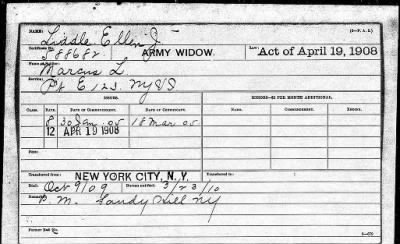 NAME: Liddle Ellen J. (3-P. A. I.)
Certificate No. 588682 ARMY WIDOW. Law: Act of April 19, 1908
Marcus L
Service: Pt E 123. NYVS
ISSUES. MINORS—$2 PER MONTH ADDITIONAL.
CLASS. RATE. DATE OF COMMENCEMENT. DATE OF CERTIFICATE. NAME. COMMENCEMENT.
8 30 Jan 05 18 Mar 05
12 APR 19 1908
Transferred from NEW YORK CITY, N.Y. Transferred to:
Died: Oct 9/09 Bureau notified: 3/23/10
P. M. Sandy Hill NY